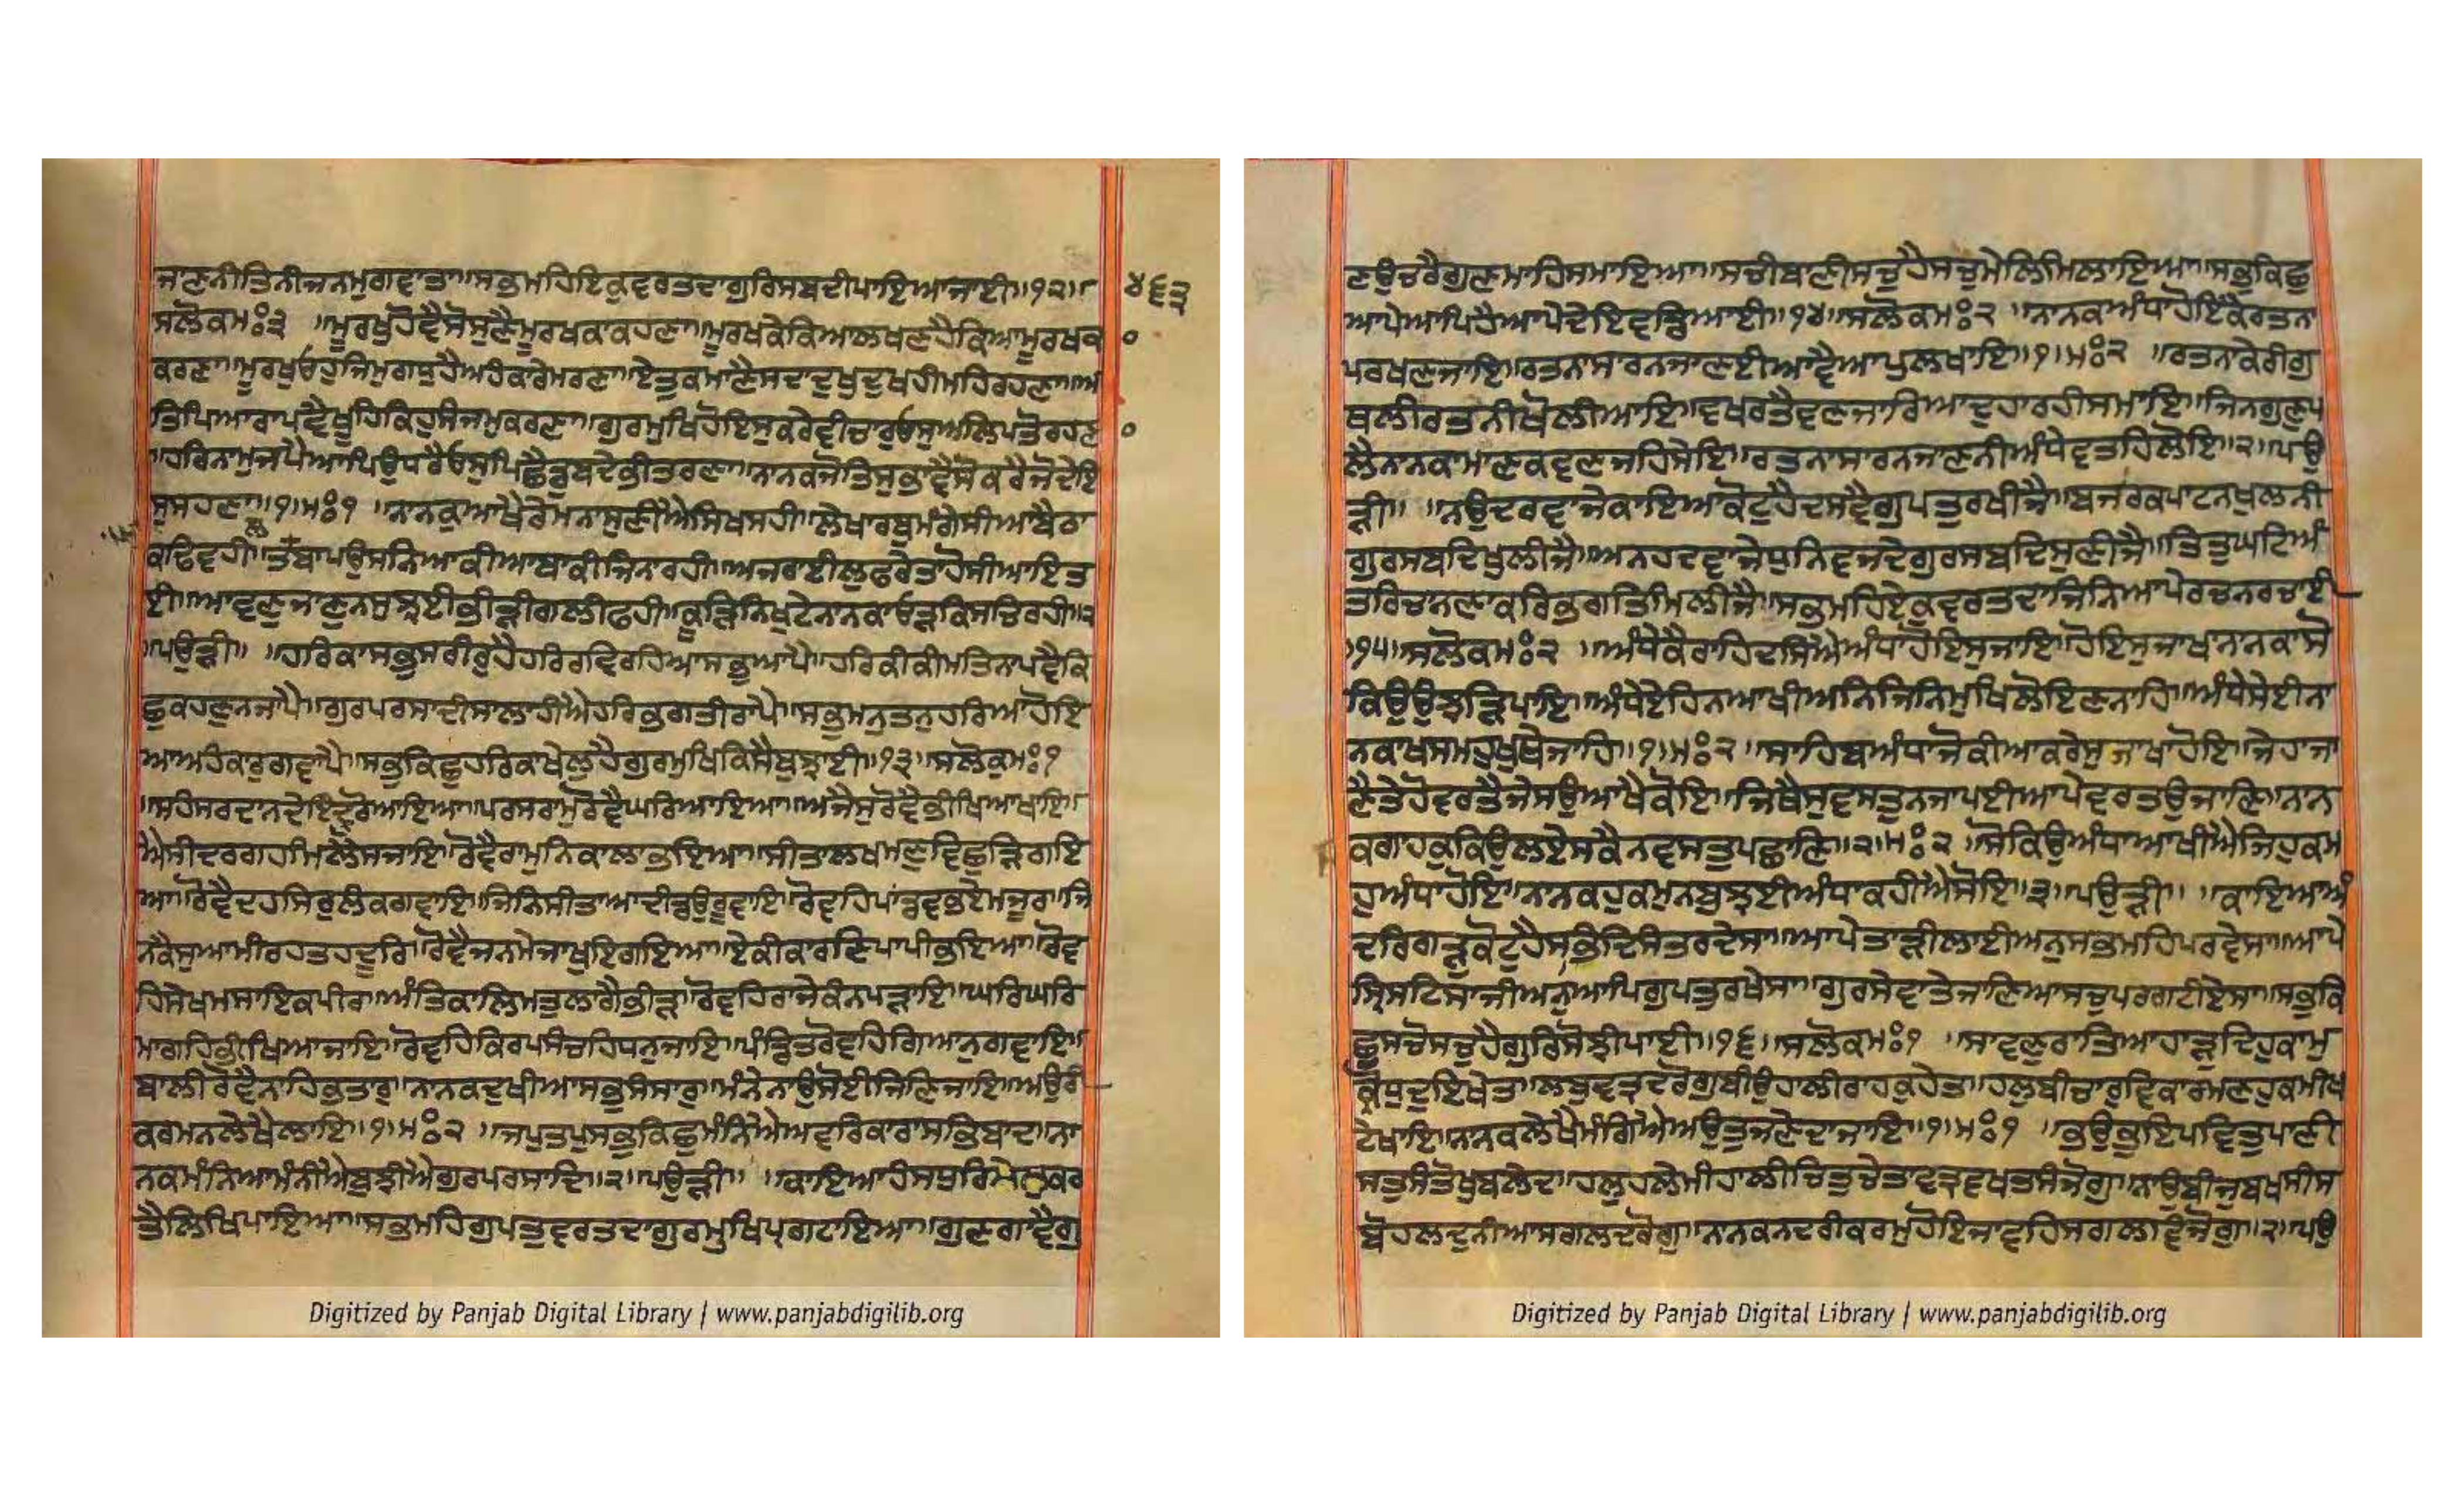 ਜਾਣਨੀਤਿਨੀਜਨਮੁਗਵਾਤਾ॥ਸਭੁਮਹਿਇਕੁਵਰਤਦਾਗੁਰਿਸਬਦੀਪਾਇਆਜਾਈ॥੧੨॥
੪੬੩
ਸਲੋਕਮਃ੩ ॥ਮੂਰਖੁਹੋਵੈਸੋਸੁਣੈਮੂਰਖਕਾਕਹਣਾ॥ਮੂਰਖਕੇਕਿਆਲਖਣਹੈਕਿਆਮੂਰਖਕਾ
ਕਰਣਾ॥ਮੂਰਖੁਓਹੁਜਿਮੁਗਧੁਹੈਅਹੰਕਾਰੇਮਰਣਾ॥ਏਤੁਕਮਾਣੈਸਦਾਦੁਖੁਦੁਖਹੀਮਹਿਰਹਣਾ॥ਅ
ਤਿਪਿਆਰਾਪਵੈਖੂਹਿਕਿਹੁਸੰਜਮੁਕਰਣਾ॥ਗੁਰਮੁਖਿਹੋਇਸੁਕਰੇਵੀਚਾਰੁਓਸੁਅਲਿਪਤੋਰਹਣਾ
॥ਹਰਿਨਾਮੁਜਪੈਆਪਿਉਧਰੈਓਸੁਪਿਛੈਡੁਬਦੇਭੀਤਰਣਾ॥ਨਾਨਕਜੋਤਿਸੁਭਾਵੈਸੋਕਰੈਜੋਦੇਇ
ਸੁਸਹਣਾ॥੧॥ਮਃ੧ ॥ਨਾਨਕੁਆਖੈਰੇਮਨਾਸੁਣੀਐਸਿਖਸਹੀ॥ਲੇਖਾਰਬੁਮੰਗੇਸੀਆਬੈਠਾ
ਕਢਿਵਹੀ॥ਤਲਬਾਪਉਸਨਿਆਕੀਆਬਾਕੀਜਿਨਾਰਹੀ॥ਅਜਰਾਈਲੁਫਰੇਤਾਹੋਸੀਆਇਤ
ਈ॥ਆਵਣੁਜਾਣੁਨਸੁਝਈਭੀੜੀਗਲੀਫਹੀ॥ਕੂੜਿਨਿਖੁਟੇਨਾਨਕਾਓੜਕਿਸਚਿਰਹੀ॥੨
॥ਪਉੜੀ॥ ॥ਹਰਿਕਾਸਭੁਸਰੀਰੁਹੈਹਰਿਰਵਿਰਹਿਆਸਭੁਆਪੈ॥ਹਰਿਕੀਕੀਮਤਿਨਾਪਵੈਕਿ
ਛੁਕਹਣੁਨਜਾਪੈ॥ਗੁਰਪਰਸਾਦੀਸਾਲਾਹੀਐਹਰਿਭਗਤੀਰਾਪੈ॥ਸਭੁਮਨੁਤਨੁਹਰਿਆਹੋਇ
ਆਅਹੰਕਾਰੁਗਵਾਪੈ॥ਸਭੁਕਿਛੁਹਰਿਕਾਖੇਲੁਹੈਗੁਰਮੁਖਿਕਿਸੈਬੁਝਾਈ॥੧੩॥ਸਲੋਕੁਮਃ੧
॥ਸਹੰਸਰਦਾਨਦੇਇੰਦ੍ਰੋਰੋਆਇਆ॥ਪਰਸਰਾਮੁਰੋਵੈਘਰਿਆਇਆ॥ਅਜੈਸੁਰੋਵੈਭੀਖਿਆਖਾਇ॥
ਐਸੀਦਰਗਹਮਿਲੈਸਜਾਇ॥ਰੋਵੈਰਾਮੁਨਿਕਾਲਾਭਇਆ॥ਸੀਤਾਲਖਮਣੁਵਿਛੁੜਿਗਇ
ਆ॥ਰੋਵੈਦਹਸਿਰੁਲੰਕਗਵਾਇ॥ਜਿਨਿਸੀਤਾਆਦੀਡਉਰੂਵਾਇ॥ਰੋਵਹਿਪਾਂਡਵਭਏਮਜੂਰ॥ਜਿ
ਨਕੈਸੁਆਮੀਰਹਤਹਦੂਰਿ॥ਰੋਵੈਜਨਮੇਜਾਖੁਇਗਇਆ॥ਏਕੀਕਾਰਣਿਪਾਪੀਭਇਆ॥ਰੋਵ
ਹਿਸੇਖਮਸਾਇਕਪੀਰ॥ਅੰਤਿਕਾਲਿਮਤੁਲਾਗੈਭੀੜ॥ਰੋਵਹਿਰਾਜੇਕੰਨਪੜਾਇ॥ਘਰਿਘਰਿ
ਮਾਗਹਿਭੀਖਿਆਜਾਇ॥ਰੋਵਹਿਕਿਰਪਸੰਚਹਿਧਨੁਜਾਇ॥ਪੰਡਿਤਰੋਵਹਿਗਿਆਨੁਗਵਾਇ॥
ਬਾਲੀਰੋਵੈਨਾਹਿਭਤਾਰੁ॥ਨਾਨਕਦੁਖੀਆਸਭੁਸੰਸਾਰੁ॥ਮੰਨੇਨਾਉਸੋਈਜਿਣਿਜਾਇ॥ਅਉਰੀ
ਕਰਮਨਲੇਖੈਲਾਇ॥੧॥ਮਃ੨ ॥ਜਪੁਤਪੁਸਭੁਕਿਛੁਮੰਨਿਐਅਵਰਿਕਾਰਾਸਭਿਬਾਦਿ॥ਨਾ
ਨਕਮੰਨਿਆਮੰਨੀਐਬੁਝੀਐਗੁਰਪਰਸਾਦਿ॥੨॥ਪਉੜੀ॥ ॥ਕਾਇਆਹੰਸਧੁਰਿਮੇਲੁਕਰ
ਤੈਲਿਖਿਪਾਇਆ॥ਸਭਮਹਿਗੁਪਤੁਵਰਤਦਾਗੁਰਮੁਖਿਪ੍ਰਗਟਾਇਆ॥ਗੁਣਗਾਵੈਗੁ
ਣਉਚਰੈਗੁਣਮਾਹਿਸਮਾਇਆ॥ਸਚੀਬਾਣੀਸਚੁਹੈਸਚੁਮੇਲਿਮਿਲਾਇਆ॥ਸਭੁਕਿਛੁ
ਆਪੇਆਪਿਹੈਆਪੇਦੇਇਵਡਿਆਈ॥੧੪॥ਸਲੋਕਮਃ੨ ॥ਨਾਨਕਅੰਧਾਹੋਇਕੈਰਤਨਾ
ਪਰਖਣਜਾਇ॥ਰਤਨਾਸਾਰਨਜਾਣਈਆਵੈਆਪੁਲਖਾਇ॥੧॥ਮਃ੨ ॥ਰਤਨਾਕੇਰੀਗੁ
ਥਲੀਰਤਨੀਖੋਲੀਆਇ॥ਵਖਰਤੈਵਣਜਾਰਿਆਦੁਹਾਰਹੀਸਮਾਇ॥ਜਿਨਗੁਣੁਪ
ਲੈਨਾਨਕਾਮਾਣਕਵਣਜਹਿਸੇਇ॥ਰਤਨਾਸਾਰਨਜਾਣਨੀਅੰਧੇਵਤਹਿਲੋਇ॥੨॥ਪਉ
ੜੀ॥ ॥ਨਉਦਰਵਾਜੇਕਾਇਆਕੋਟੁਹੈਦਸਵੈਗੁਪਤੁਰਖੀਜੈ॥ਬਜਰਕਪਾਟਨਖੁਲਨੀ
ਗੁਰਸਬਦਿਖੁਲੀਜੈ॥ਅਨਹਦਵਾਜੇਧੁਨਿਵਜਦੇਗੁਰਸਬਦਿਸੁਣੀਜੈ॥ਤਿਤੁਘਟਿਅੰ
ਤਰਿਚਾਨਣਾਕਰਿਭਗਤਿਮਿਲੀਜੈ॥ਸਭਮਹਿਏਕੁਵਰਤਦਾਜਿਨਿਆਪੇਰਚਨਰਚਾਈ
॥੧੫॥ਸਲੋਕਮਃ੨ ॥ਅੰਧੇਕੈਰਾਹਿਦਸਿਐਅੰਧਾਹੋਇਸੁਜਾਇ॥ਹੋਇਸੁਜਾਖਾਨਾਨਕਾਸੋ
ਕਿਉਉਝੜਿਪਾਇ॥ਅੰਧੇਏਹਿਨਆਖੀਅਨਿਜਿਨਿਮੁਖਿਲੋਇਣਨਾਹਿ॥ਅੰਧੇਸੇਈਨਾ
ਨਕਾਖਸਮਹੁਘੁਥੇਜਾਹਿ॥੧॥ਮਃ੨ ॥ਸਾਹਿਬਅੰਧਾਜੋਕੀਆਕਰੇਸੁਜਾਖਾਹੋਇ॥ਜੇਹਾਜਾ
ਣੈਤੇਹੋਵਰਤੈਜੇਸਉਆਖੈਕੋਇ॥ਜਿਥੈਸੁਵਸਤੁਨਜਾਪਈਆਪੇਵਰਤਉਜਾਣਿ॥ਨਾਨ
ਕਗਾਹਕੁਕਿਉਲਏਸਕੈਨਵਸਤੁਪਛਾਣਿ॥੨॥ਮਃ੨ ॥ਸੋਕਿਉਅੰਧਾਆਖੀਐਜਿਹੁਕਮ
ਹੁਅੰਧਾਹੋਇ॥ਨਾਨਕਹੁਕਮੁਨਬੁਝਈਅੰਧਾਕਹੀਐਸੋਇ॥੩॥ਪਉੜੀ॥ ॥ਕਾਇਆਅੰ
ਦਰਿਗੜੁਕੋਟੁਹੈਸਭਿਦਿਸੰਤਰਦੇਸਾ॥ਆਪੇਤਾੜੀਲਾਈਅਨੁਸਭਮਹਿਪਰਵੇਸਾ॥ਆਪੇ
ਸ੍ਰਿਸਟਿਸਾਜੀਅਨੁਆਪਿਗੁਪਤੁਰਖੇਸਾ॥ਗੁਰਸੇਵਾਤੇਜਾਣਿਆਸਚੁਪਰਗਟੀਏਸਾ॥ਸਭੁਕਿ
ਛੁਸਚੋਸਚੁਹੈਗੁਰਿਸੋਝੀਪਾਈ॥੧੬॥ਸਲੋਕਮਃ੧ ॥ਸਾਵਣੁਰਾਤਿਅਹਾੜੁਦਿਹੁਕਾਮੁ
ਕ੍ਰੋਧੁਦੁਇਖੇਤ॥ਲਬੁਵਤ੍ਰਦਰੋਗੁਬੀਉਹਾਲੀਰਾਹਕੁਹੇਤ॥ਹਲੁਬੀਚਾਰੁਵਿਕਾਰਮਣਹੁਕਮੀਖ
ਟੇਖਾਇ॥ਨਾਨਕਲੇਖੈਮੰਗਿਐਅਉਤੁਜਣੇਦਾਜਾਇ॥੧॥ਮਃ੧ ॥ਭਉਭੁਇਪਵਿਤੁਪਾਣੀ
ਸਤੁਸੰਤੋਖੁਬਲੇਦ॥ਹਲੁਹਲੇਮੀਹਾਲੀਚਿਤੁਚੇਤਾਵਤ੍ਰਵਖਤਸੰਜੋਗੁ॥ਨਾਉਬੀਜੁਬਖਸੀਸ
ਬੋਹਲਦੁਨੀਆਸਗਲਦਰੋਗੁ॥ਨਾਨਕਨਦਰੀਕਰਮੁਹੋਇਜਾਵਹਿਸਗਲਵਿਜੋਗੁ॥੨॥ਪਉ
Digitized by Panjab Digital Library | www.panjabdigilib.org
Digitized by Panjab Digital Library | www.panjabdigilib.org